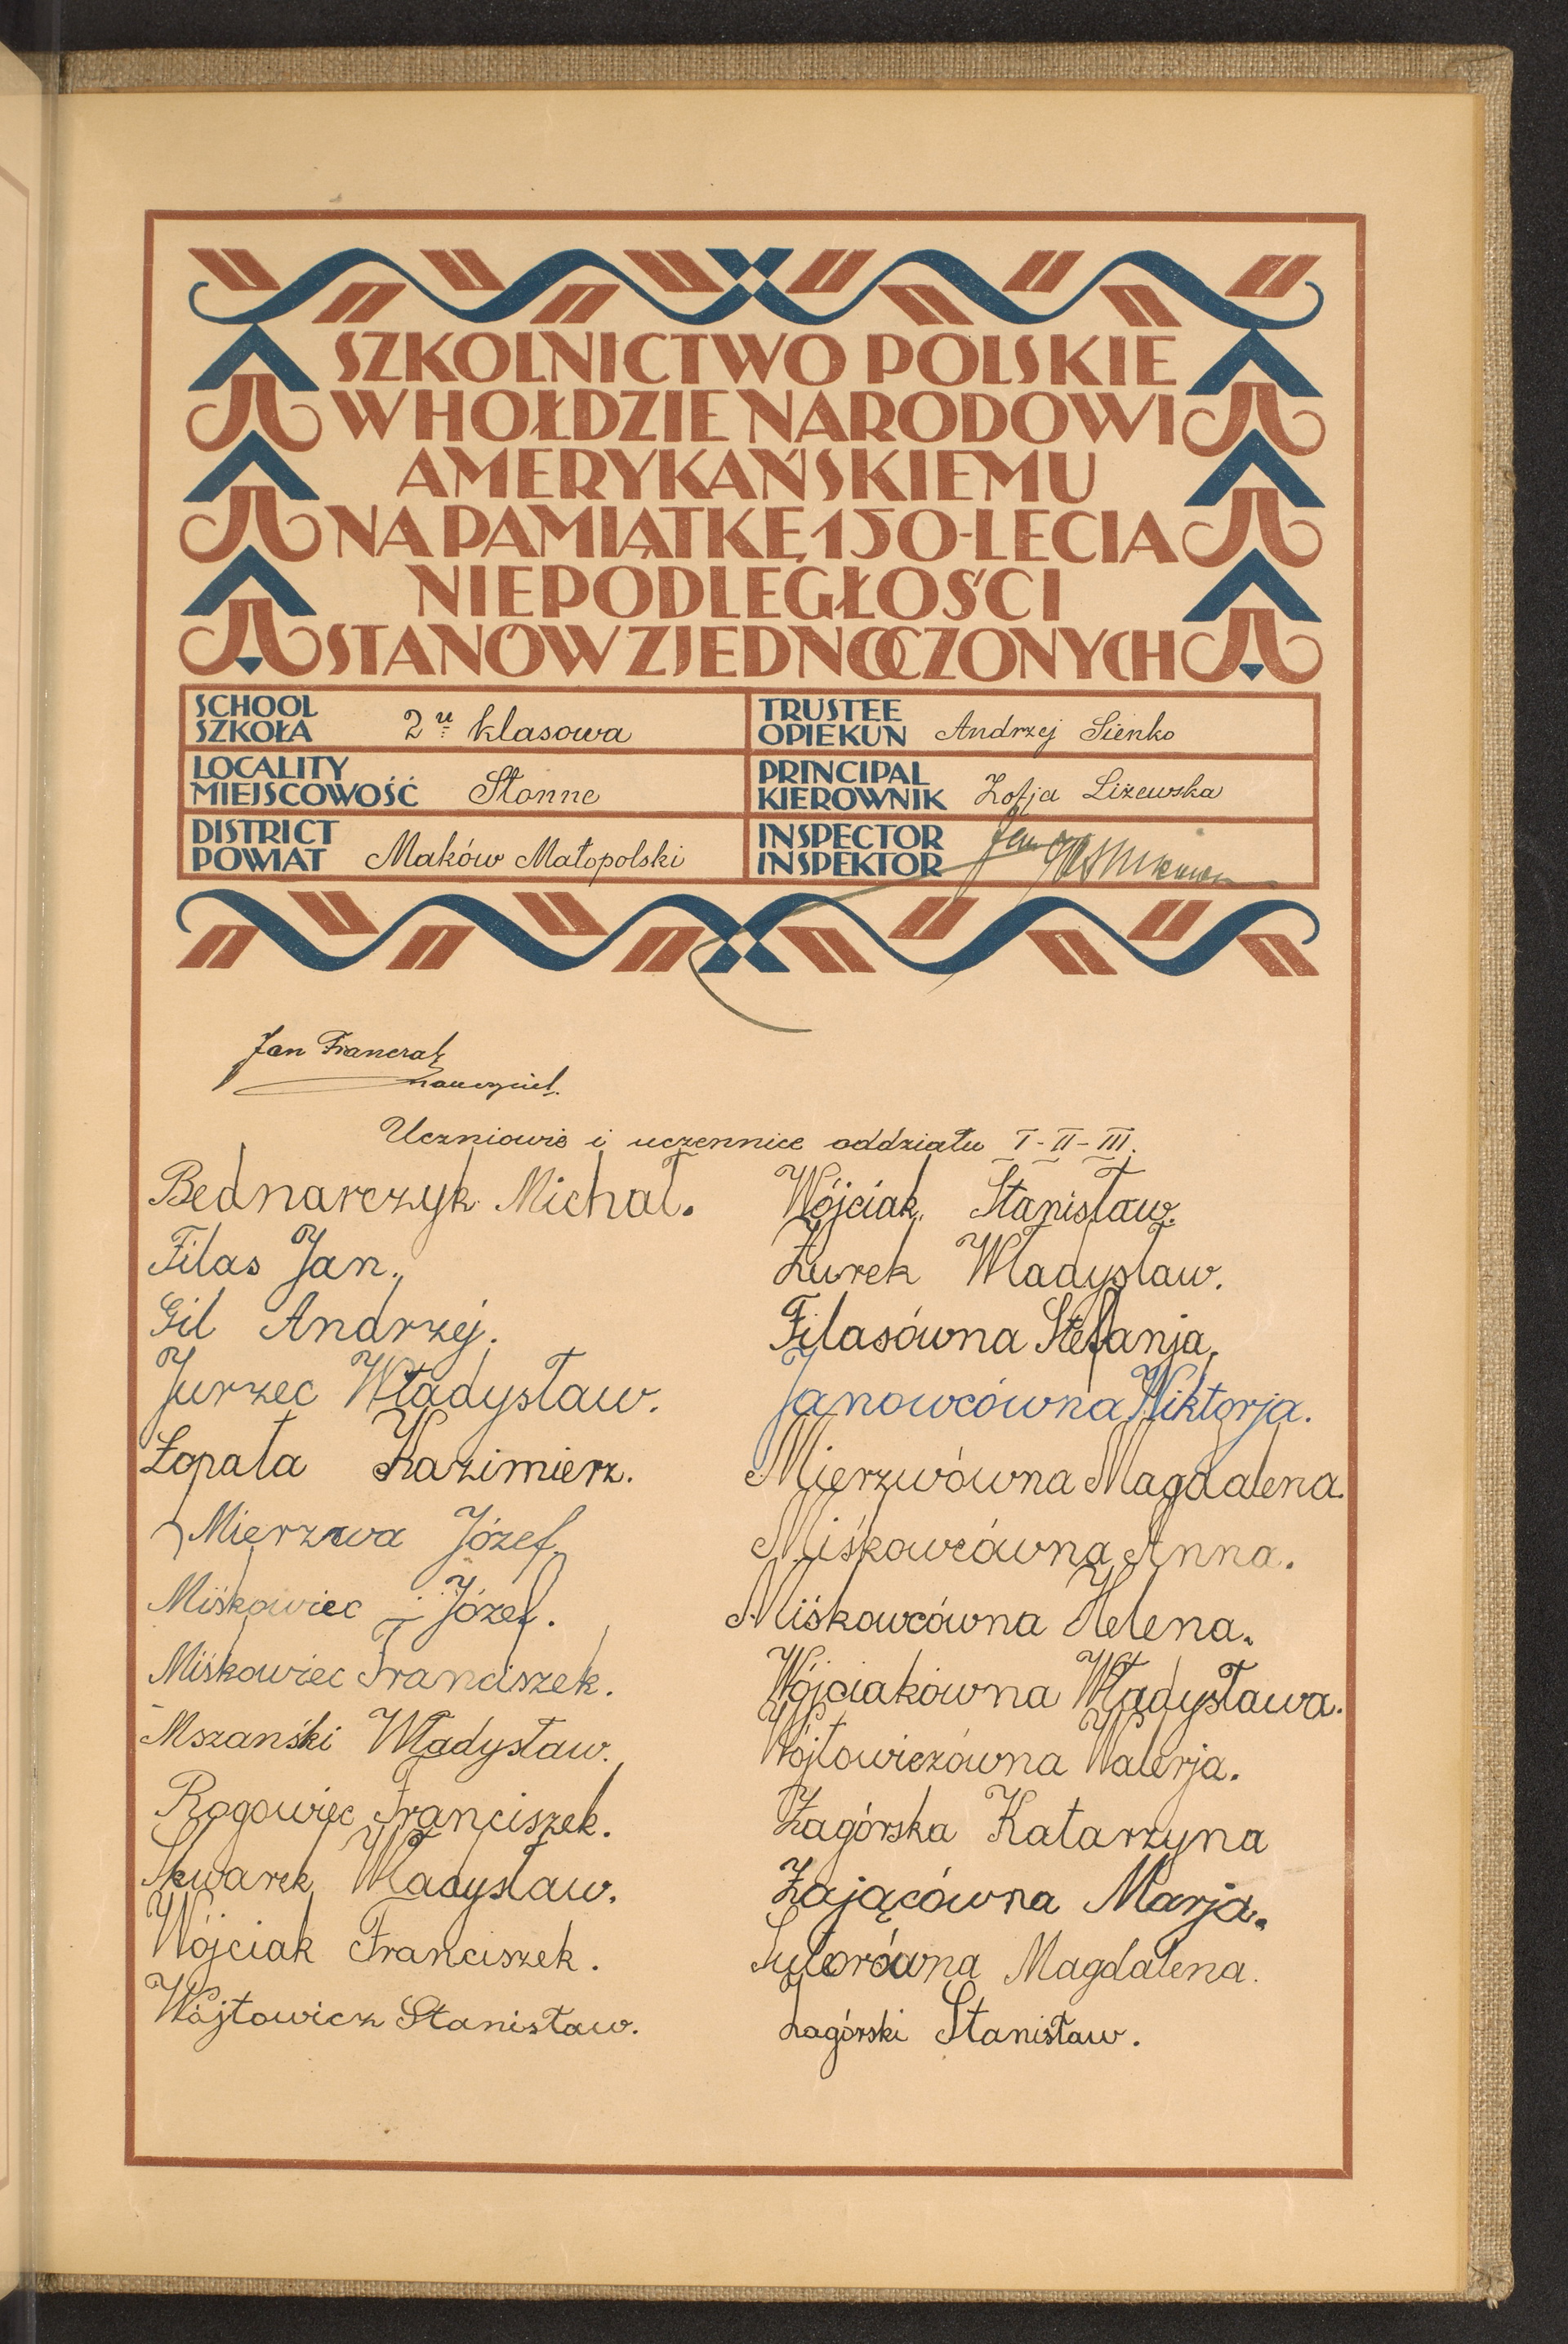 SZKOLNICTWO POLSKIE
W HOŁDZIE NARODOWI
AMERYKAŃSKIEMU
NA PAMIĄTKĘ 150-LECIA
NIEPODLEGŁOŚCI
STANÓW ZJEDNOCZONYCH
SCHOOL
SZKOŁA 2u klasowa
TRUSTEE
OPIEKUN Andrzej Sienko
LOCALITY
MIEJSCOWOŚĆ Słonne
PRINCIPAL
KIEROWNIK Zofja Liżewska
DISTRICT
POWIAT Maków Małopolski
INSPECTOR
INSPEKTOR Jan
Jan Franczak
nauczyciel.
Uczniowie i uczennice oddziału I-II-III.
Bednarczyk Michał.
Filas Jan.
Gil Andrzej.
Jurzec Władysław.
Łopata Kazimierz.
Mierzwa Józef.
Miśkowiec Józef.
Miśkowiec Franciszek.
Mszański Władysław.
Rogowiec Franciszek.
Skwarek Władysław.
Wójciak Franciszek.
Wójtowicz Stanisław.
Wójciak Stanisław.
Żurek Władysław.
Filasówna Stefanja.
Janowcówna Wiktorja.
Mierzwówna Magdalena.
Miśkowcówna Anna.
Miśkowcówna Helena.
Wójciakówna Władysława.
Wójtowiczówna Walerja.
Zagórska Katarzyna
Zającówna Marja.
Sutorówna Magdalena.
Zagórski Stanisław.